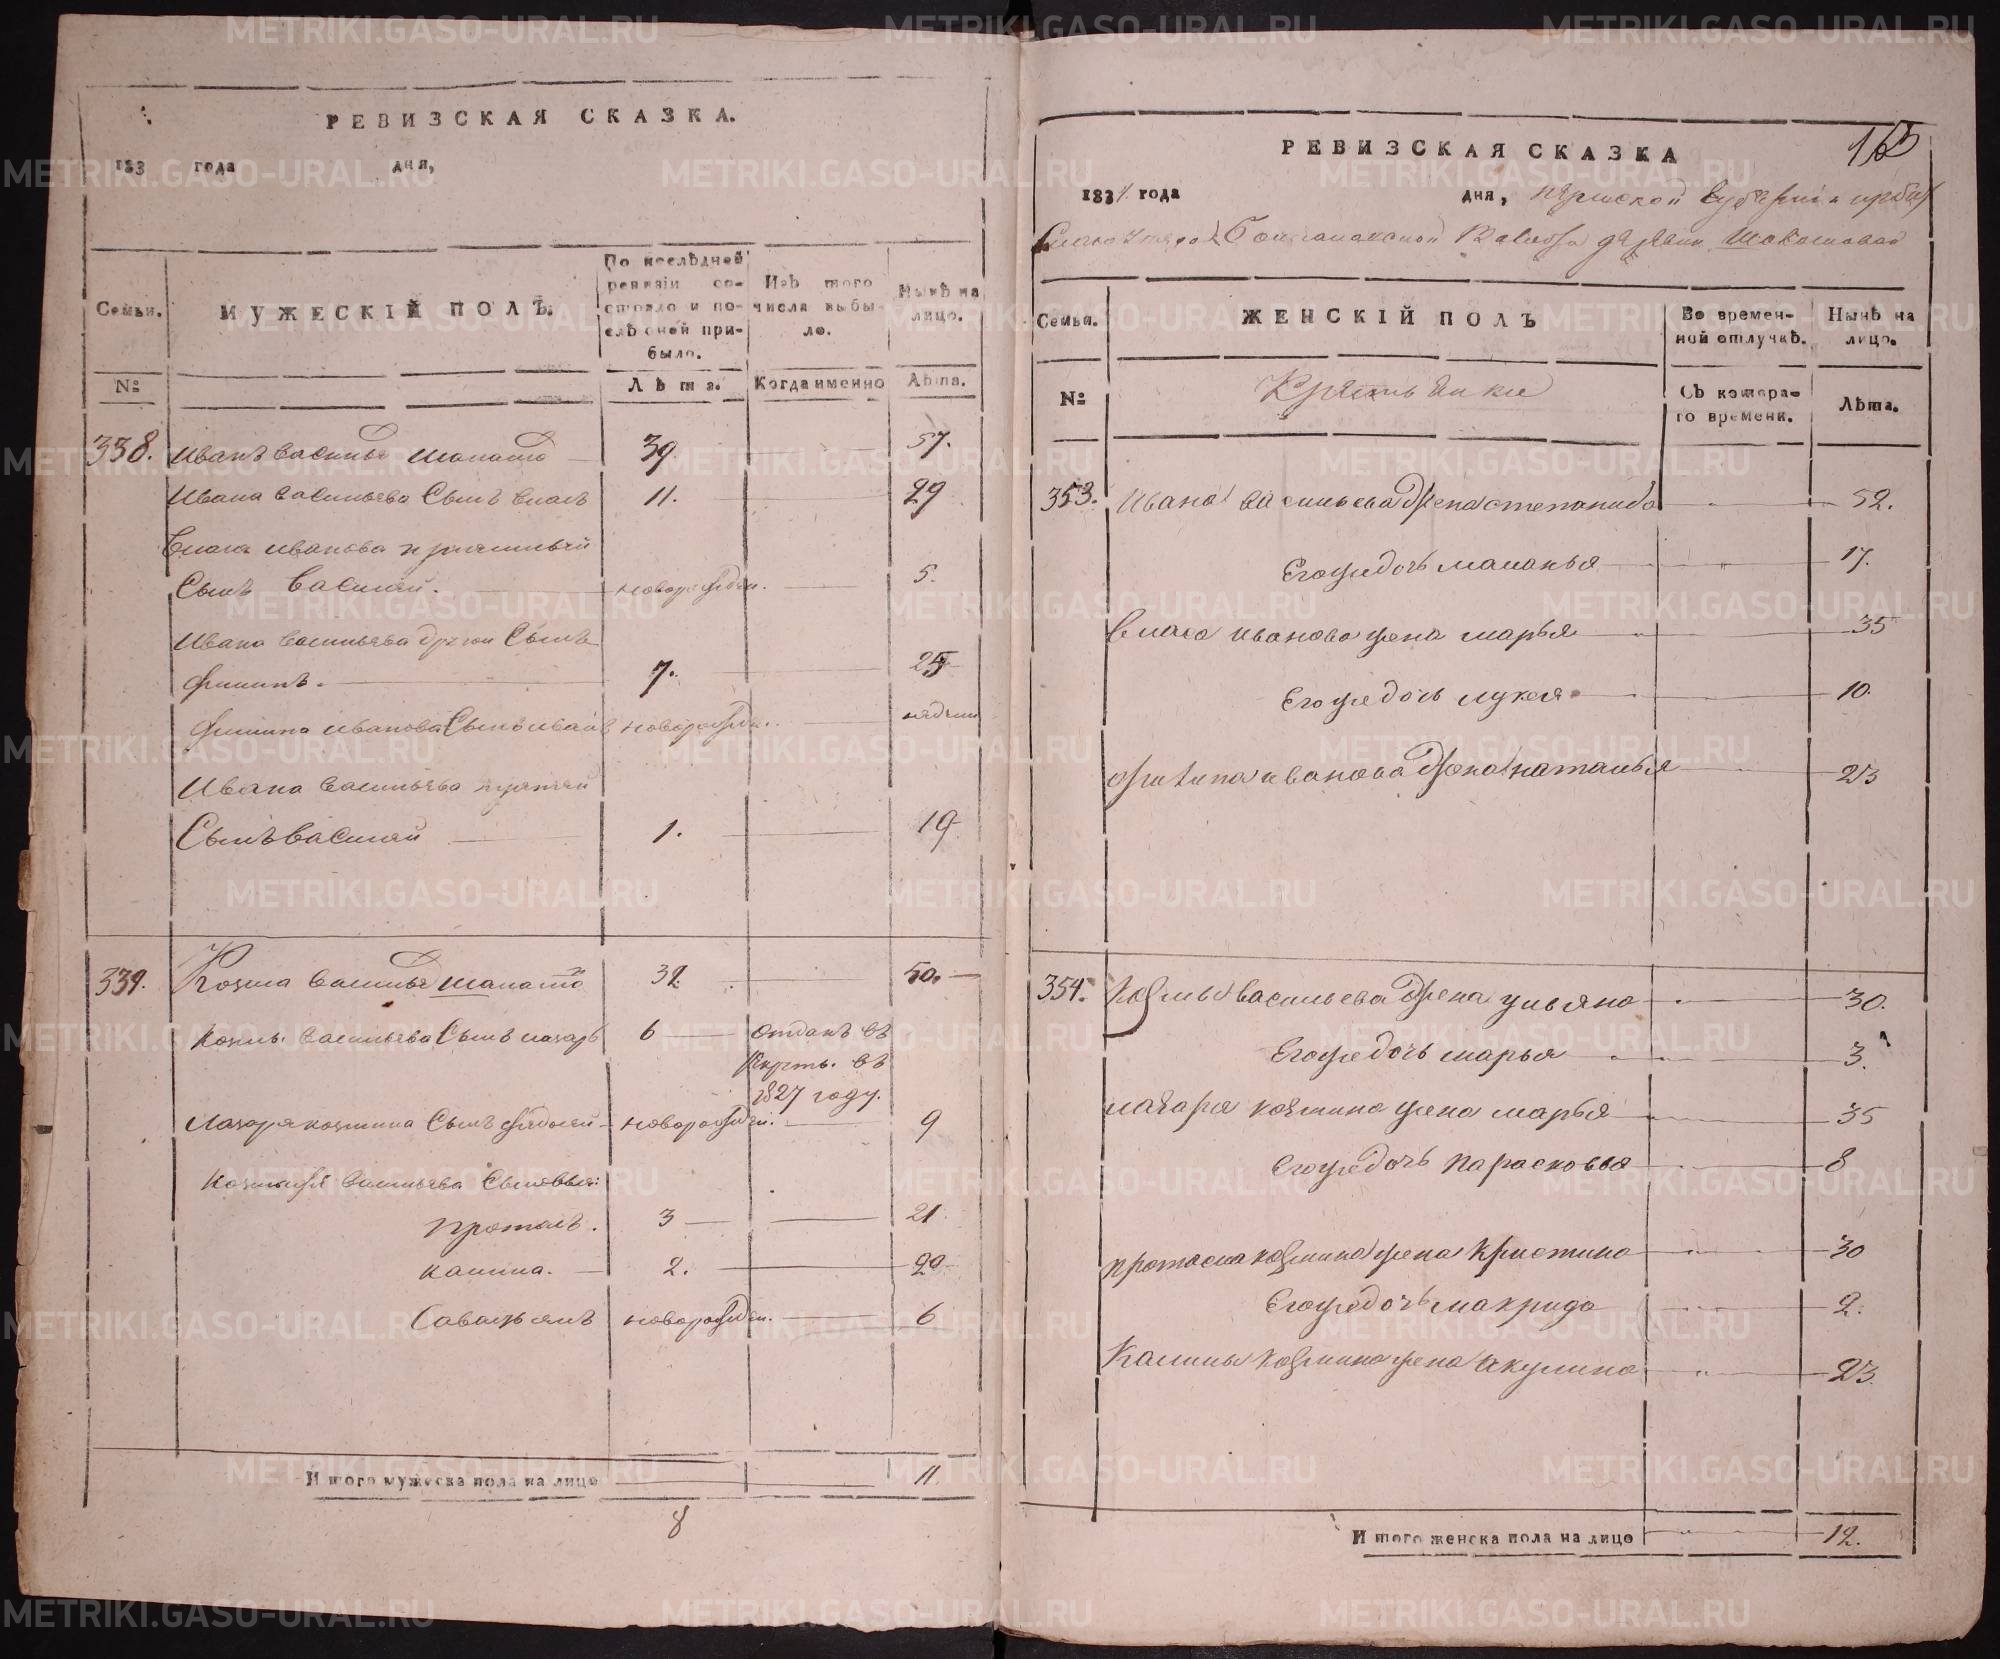 РЕВИЗСКАЯ СКАЗКА.
183 года дня,
Семьи.
МУЖЕСКІЙ ПОЛЪ.
По послѣдней ревизіи состояло и послѣ оной прибыло.
Изъ того числа выбыло.
Нынѣ на лицо.
№
Лѣта.
Когда именно
Лѣта.
338. Иванъ Васильевъ 39. 57.
Ивана Васильева Сынъ Власъ 11. 29
Власа Иванова
Сынъ Василий. новорожден. 5.
Ивана Васильева Сынъ
Филипъ. 7. 25
Филипа Иванова Сынъ Иванъ новорожден. недели
Ивана Васильева третей
Сынъ Василий 1. 19
339. Козма Васильевъ 32. 50.
Козмы Васильева Сынъ лазарь 6 отданъ въ
рекрты. въ
1827 году.
Лазаря козмина Сынъ новорожден. 9
Васильева Сыновья:
протасъ. 3 21.
калина. 2. 20
Савастьянъ новорожден. 6
Итого мужеска пола на лицо 11.
8
РЕВИЗСКАЯ СКАЗКА
1834. года дня, пермской губернии
деревни
Семьи.
ЖЕНСКІЙ ПОЛЪ
Во временной отлучкѣ.
Нынѣ на лицо.
№
Крестьянки
Съ котораго времени.
Лѣта.
353. Ивана васильева жена степанида 52.
Егожедочь маланья 17.
Власа иванова жена марья 35
Егожедочь лукея 10.
филипа иванова жена наталья 23
354. козмы васильева жена ульяна 30.
Егожедочь марья 3.
лазаря козмина жена марья 35
Егожедочь парасковья 8
протасия козмина жена кристина 30
Егожедочь макрида 2.
Калины козмина жена акулина 23.
Итого женска пола на лицо 12.
METRIKI.GASO-URAL.RU